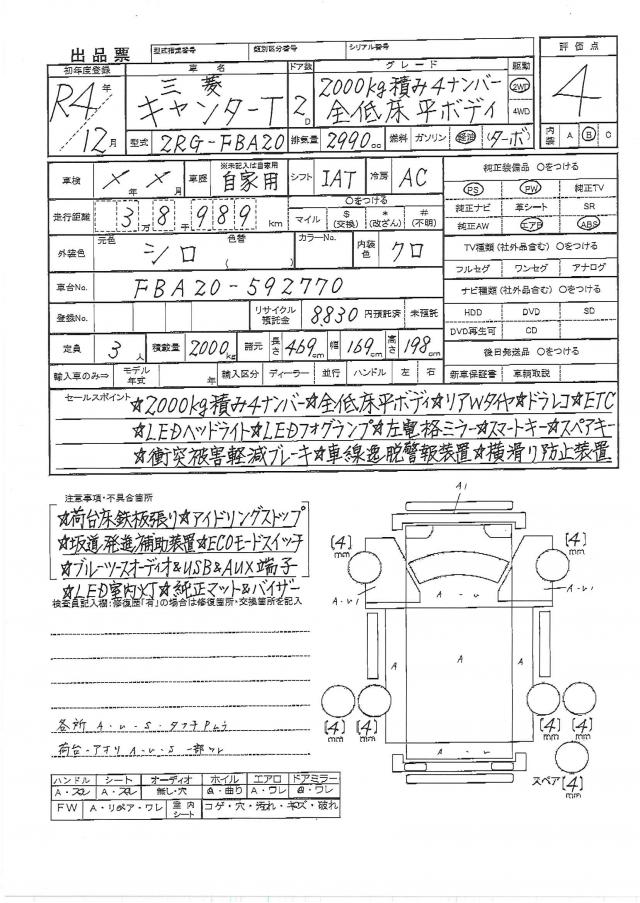 出品票
型式指定番号 類別区分番号 シリアル番号
初年度登録 車名 ドア数 グレード 駆動 評価点
R4年/12月 三菱 キャンターT 2D 2000kg積み4ナンバー 全低床平ボディ 2WD 4WD 4
型式 2RG-FBA20 排気量 2990cc 燃料 ガソリン 軽油 ターボ 内装 A B C
車検 ×年×月 車歴 ※未記入は自家用 自家用 シフト IAT 冷房 AC
純正装備品 〇をつける
PS PW 純正TV
純正ナビ 革シート SR
純正AW エアB ABS
走行距離 3万8千989km 〇をつける マイル $(交換) *(改ざん) #(不明)
外装色 元色 シロ 色替 ( ) カラーNo. 内装色 クロ
TV種類(社外品含む) 〇をつける
フルセグ ワンセグ アナログ
車台No. FBA20-592770
ナビ種類(社外品含む) 〇をつける
HDD DVD SD
DVD再生可 CD
登録No. リサイクル預託金 8830 円預託済 未預託
定員 3人 積載量 2000kg 諸元 長さ 469cm 幅 169cm 高さ 198cm
後日発送品 〇をつける
輸入車のみ⇒ モデル年式 年 輸入区分 ディーラー 並行 ハンドル 左 右 新車保証書 車輌取説
セールスポイント
☆2000kg積み4ナンバー☆全低床平ボディ☆リアWタイヤ☆ドラレコ☆ETC
☆LEDヘッドライト☆LEDフォグランプ☆左電格ミラー☆スマートキー☆スペアキー
☆衝突被害軽減ブレーキ☆車線逸脱警報装置☆横滑り防止装置
注意事項・不具合箇所
☆荷台床鉄板張り☆アイドリングストップ
☆坂道発進補助装置☆ECOモードスイッチ
☆ブルーツースオーディオ&USB&AUX端子
☆LED室内灯☆純正マット&バイザー
検査員記入欄:修復歴「有」の場合は修復箇所・交換箇所を記入
各所 A・U・S・タッチ
荷台・アオリ A・U・S 一部
A1
[4] mm [4] mm
A-U1 A-U A-U1
A A-U A
[4] mm [4] mm [4] mm [4] mm
A-U
スペア [4] mm
ハンドル シート オーディオ ホイル エアロ ドアミラー
A・スレ A・スレ 無し・穴 A・曲り A・ワレ A・ワレ
FW A・リペア・ワレ 室内シート コゲ・穴・汚れ・キズ・破れ